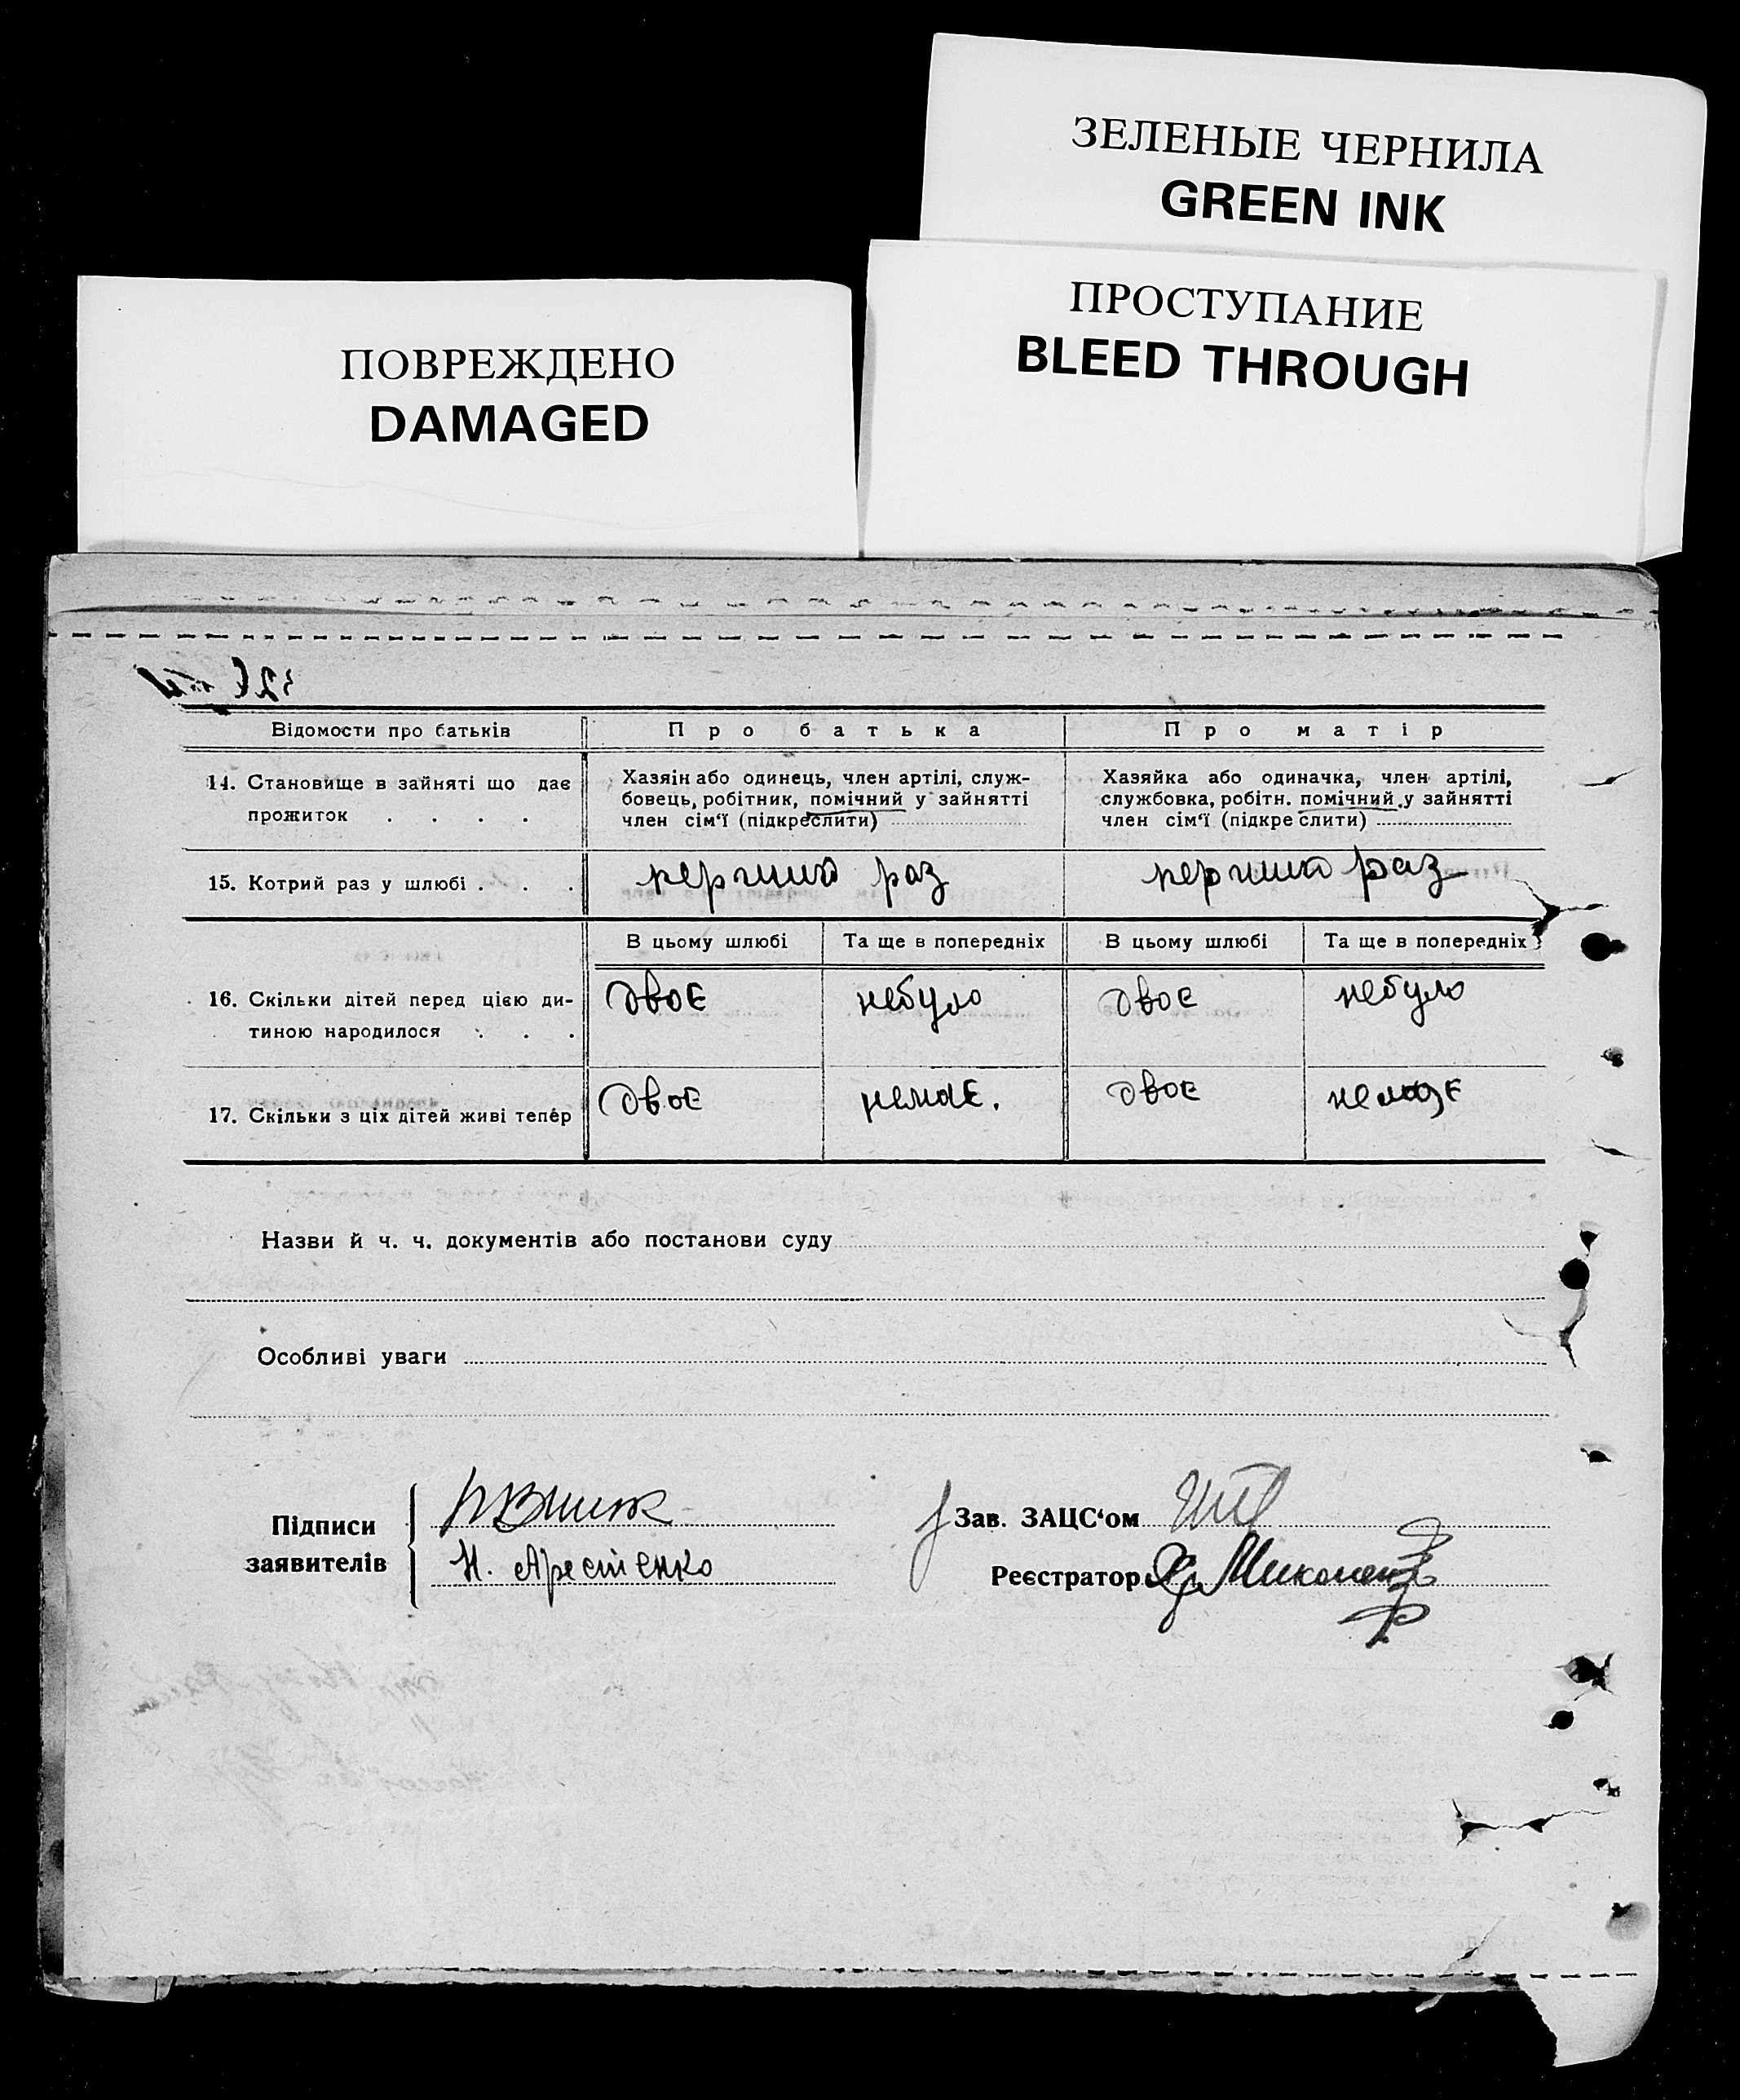 ЗЕЛЕНЫЕ ЧЕРНИЛА
GREEN INK
ПРОСТУПАНИЕ
BLEED THROUGH
ПОВРЕЖДЕНО
DAMAGED
Відомости про батьків
Про батька
Про матір
14. Становище в зайняті що дає
прожиток . . . .
Хазяін або одинець, член артілі, служ-
бовець, робітник, помічний у зайнятті
член сім‘ї (підкреслити)
Хазяйка або одиначка, член артілі,
службовка, робітн. помічний у зайнятті
член сім‘ї (підкреслити)
15. Котрий раз у шлюбі . . .
перший раз
перший раз
В цьому шлюбі
Та ще в попередніх
В цьому шлюбі
Та ще в попередніх
16. Скільки дітей перед цією ди-
тиною народилося . . .
двоє
небуло
двоє
небуло
17. Скільки з ціх дітей живі тепер
двоє
немає.
двоє
немає
Назви й ч. ч. документів або постанови суду
Особливі уваги
Підписи
заявителів
Н. Арестенко
Зав. ЗАЦС‘ом
Реєстратор